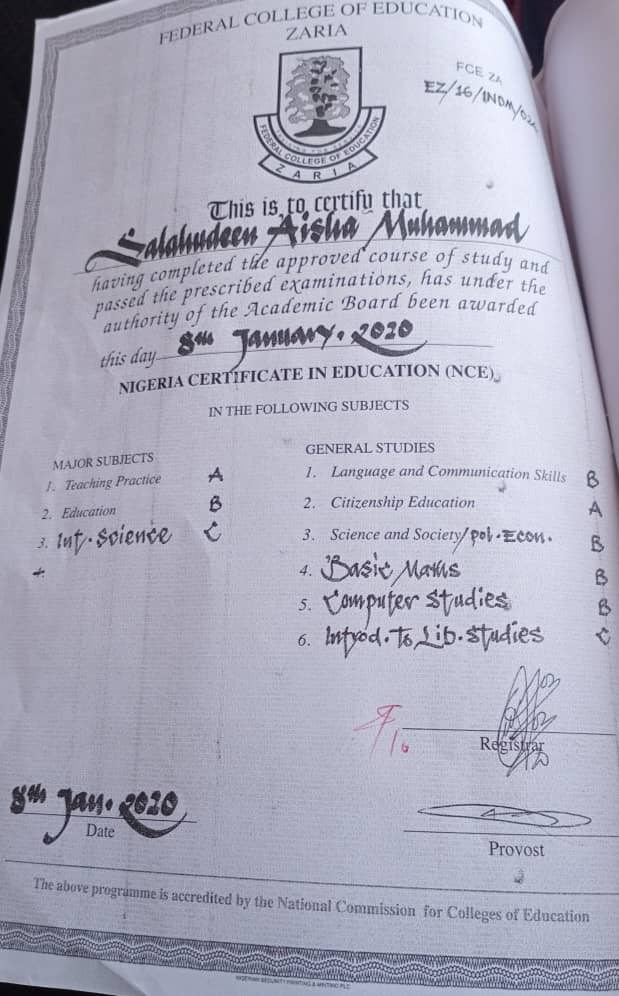 FEDERAL COLLEGE OF EDUCATION
ZARIA
FCE ZA
EZ/16/INDM/
FEDERAL COLLEGE OF EDUCATION
ZARIA
This is to certify that
Salahudeen Aisha Muhammad
having completed the approved course of study and
passed the prescribed examinations, has under the
authority of the Academic Board been awarded
this day 8th January. 2020
NIGERIA CERTIFICATE IN EDUCATION (NCE)
IN THE FOLLOWING SUBJECTS
MAJOR SUBJECTS
1. Teaching Practice A
2. Education B
3. Int. Science C
4.
GENERAL STUDIES
1. Language and Communication Skills B
2. Citizenship Education A
3. Science and Society/Pol. Econ. B
4. Basic Maths B
5. Computer Studies B
6. Introd. To Lib. Studies C
Registrar
8th Jan. 2020
Date
Provost
The above programme is accredited by the National Commission for Colleges of Education
NIGERIAN SECURITY PRINTING & MINTING PLC